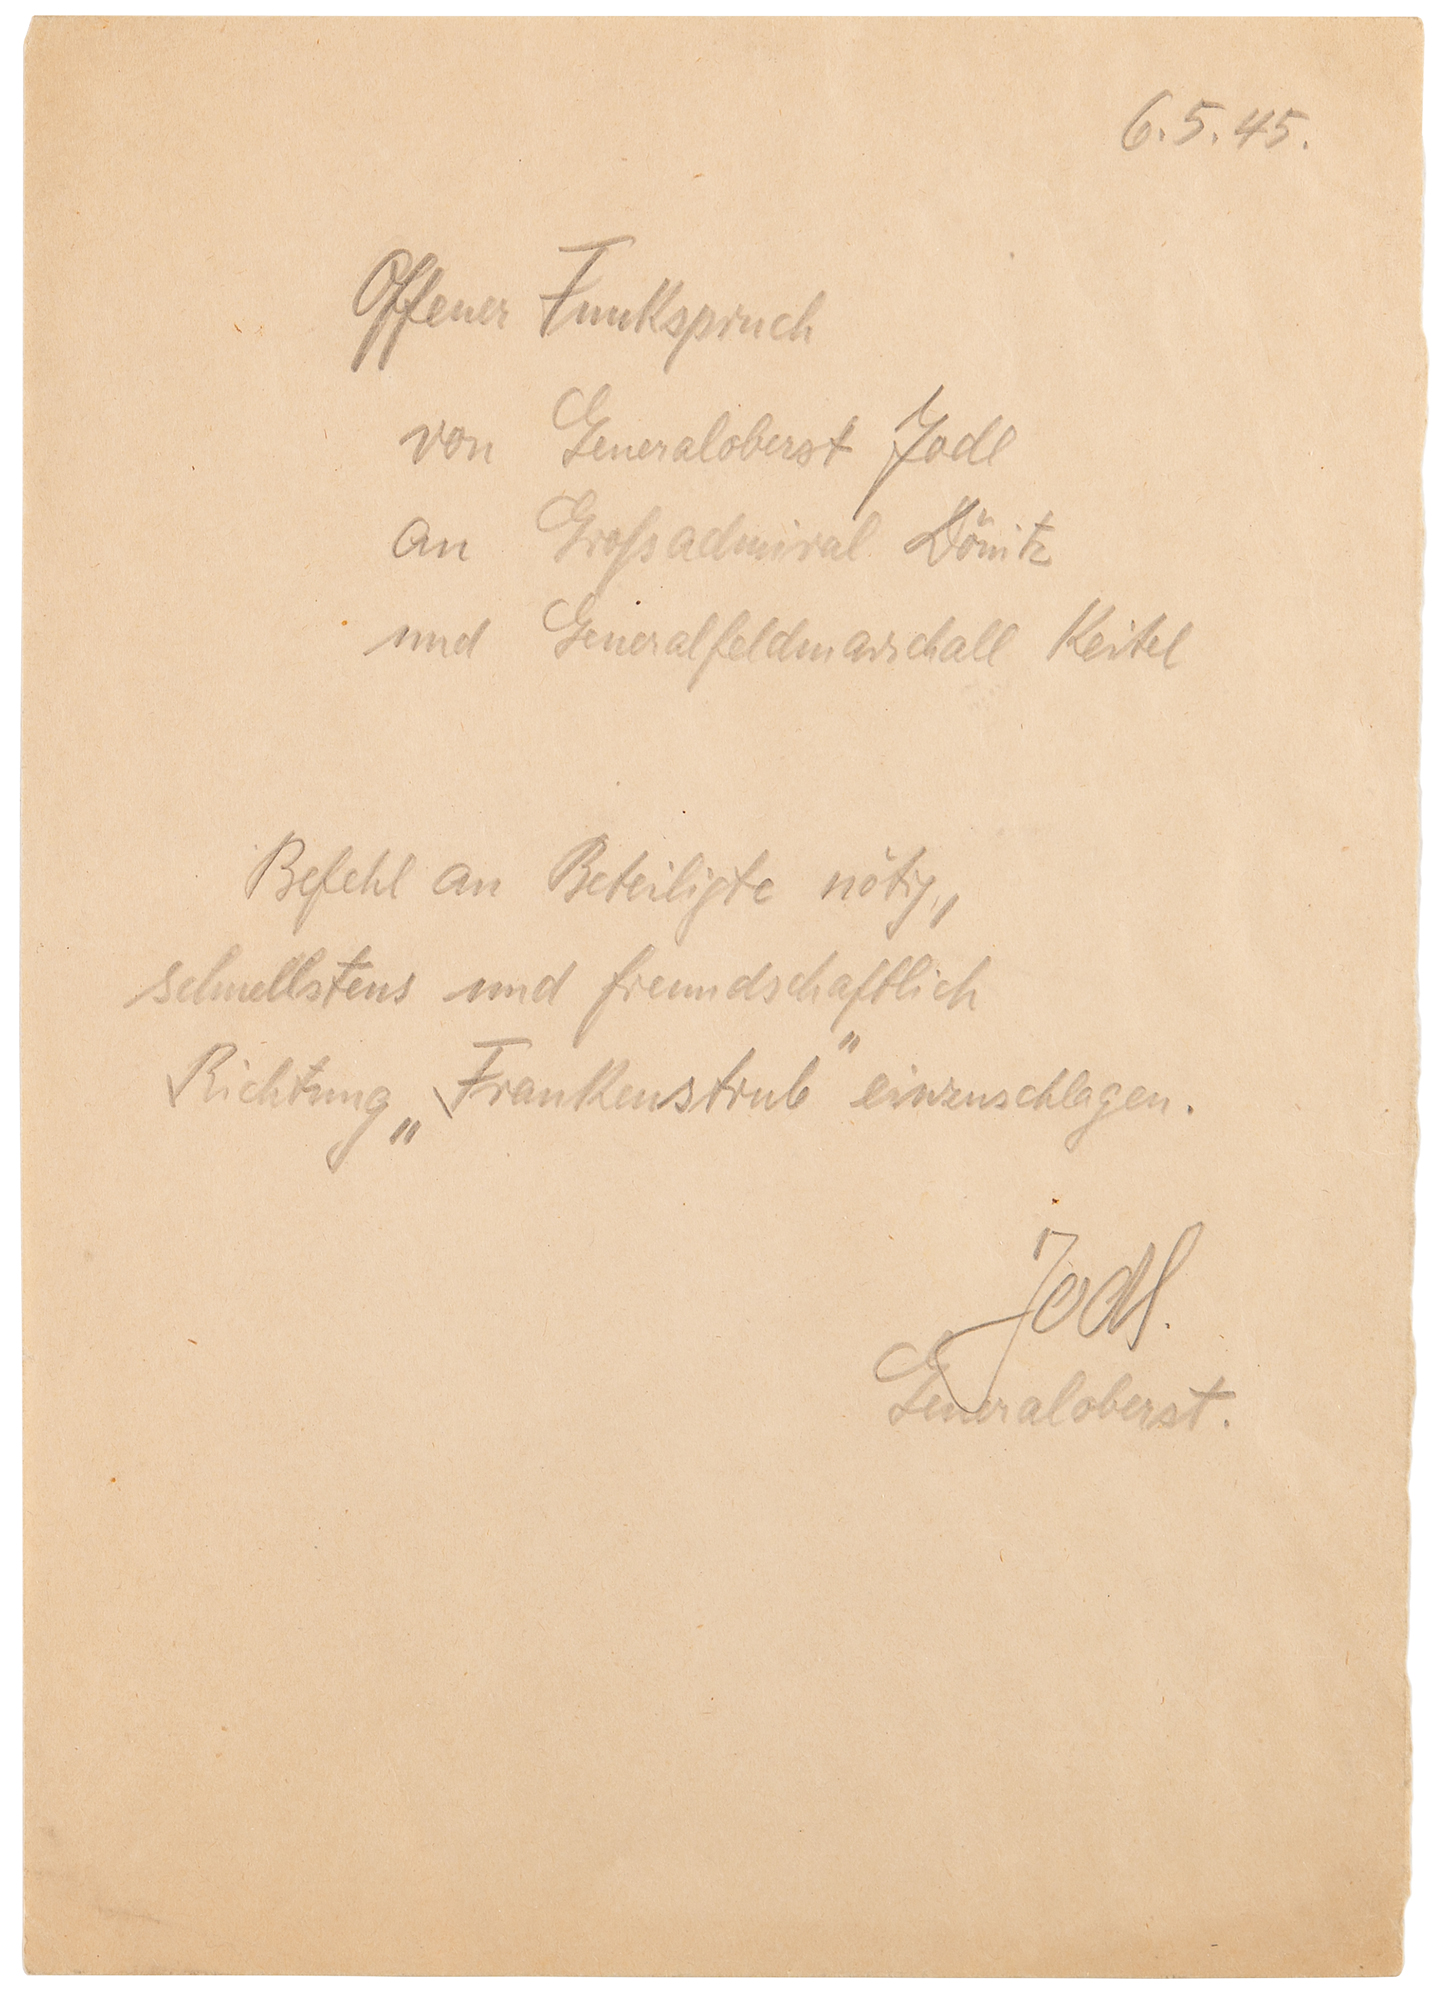 6.5.45.
Offener Funkspruch
von Generaloberst Jodl
an Großadmiral Dönitz
und Generalfeldmarschall Keitel
Befehl an Beteiligte nötig,
schnellstens und freundschaftlich
Richtung „Frankenstrub“ einzuschlagen.
Jodl.
Generaloberst.